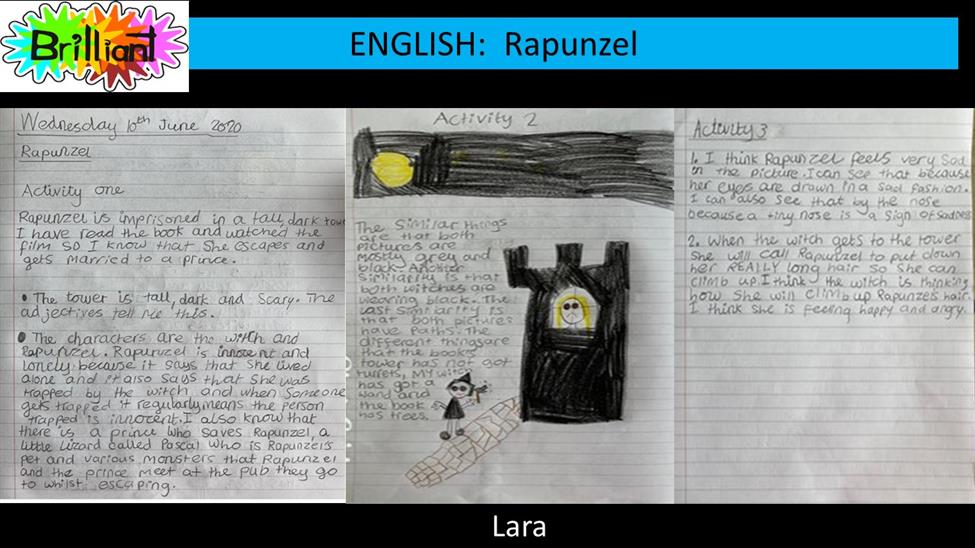 Brilliant
ENGLISH: Rapunzel
Wednesday 10th June 2020
Rapunzel
Activity one
Rapunzel is imprisoned in a tall, dark
I have read the book and watched the
film so I know that she escapes and
gets married to a prince.
• The tower is tall, dark and scary. The
adjectives tell me this.
• The characters are the witch and
Rapunzel. Rapunzel is innocent and
lonely because it says that she lived
alone and it also says that she was
trapped by the witch and when someone
gets trapped it regularly means the person
trapped is innocent. I also know that
there is a prince who saves Rapunzel, a
little lizard called Pascal who is Rapunzel's
pet and various monsters that Rapunzel
and the prince meet at the pub they go
to whilst escaping.
Activity 2
The similar things
are that both
pictures are
mostly grey and
black. Another
similarity is that
both witches are
wearing black. The
last similarity is
that both pictures
have paths. The
different things are
that the book's
tower has not got
turrets, my witch
has got a
wand and
the book
has trees.
Activity 3
1. I think Rapunzel feels very sad
in the picture. I can see that because
her eyes are drawn in a sad fashion.
I can also see that by the nose
because a tiny nose is a sign of sadness
2. When the witch gets to the tower
she will call Rapunzel to put down
her REALLY long hair so she can
climb up. I think the witch is thinking
how she will climb up Rapunzels hair.
I think she is feeling happy and angry.
Lara